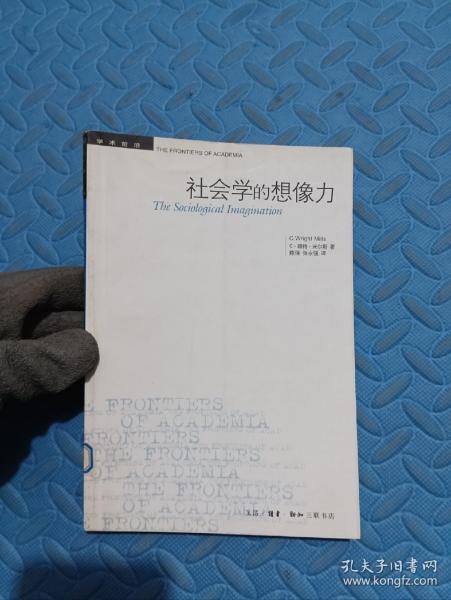 学术前沿 THE FRONTIERS OF ACADEMIA
社会学的想像力
The Sociological Imagination
C.Wright Mills
C·赖特·米尔斯 著
陈强 张永强 译
E FRONTIERS
OF ACADEMIA
FRONTIERS
THE FRONTIERS
OF ACADEMIA
THE FRONTIERS
OF ACADEM
FRONTIERS
生活·读书·新知三联书店
孔夫子旧书网
www.kongfz.com